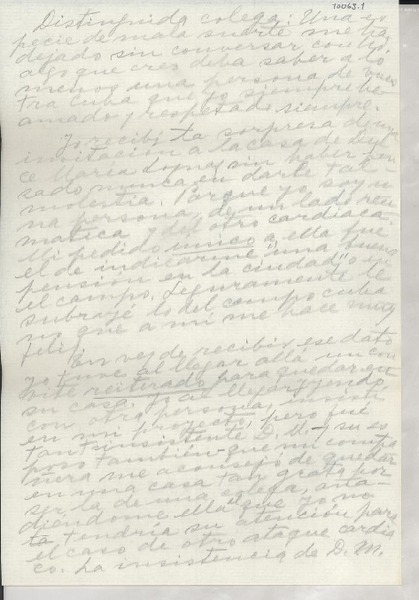 10063.1
Distinguida colega: Una es
pecie de mala suerte me ha
dejado sin conversar con Ud.
algo que creo deba saber a lo
menos una persona de vues
tra Cuba que yo siempre he
amado y respetado siempre.
Yo recibí la sorpresa de una
invitación a la casa de Dul
ce María Loynaz sin haber pen
sado nunca en darle tal
molestia. Porque yo soy u
na persona, de un lado reu
mática y del otro cardíaca.
Mi pedido único a ella fue
el de indicarme "una buena
pensión en la ciudad" o en
el campo. Seguramente le
subrayé lo del campo cuba
no que a mí me hace muy
feliz.
En vez de recibir ese dato
yo tuve al llegar allá un con
vite reiterado para quedar en
su casa. Yo al llegar yendo
con otra persona, insistí
en mi proyecto; pero fué
tan insistente D. M. y su es
poso también que mi compa
ñera me aconsejó de quedar
en una casa tan grata por
ser la de una colega, aña
diéndome ella que yo no
tendría su atención para
el caso de otro ataque cardía
co. La insistencia de D. M.